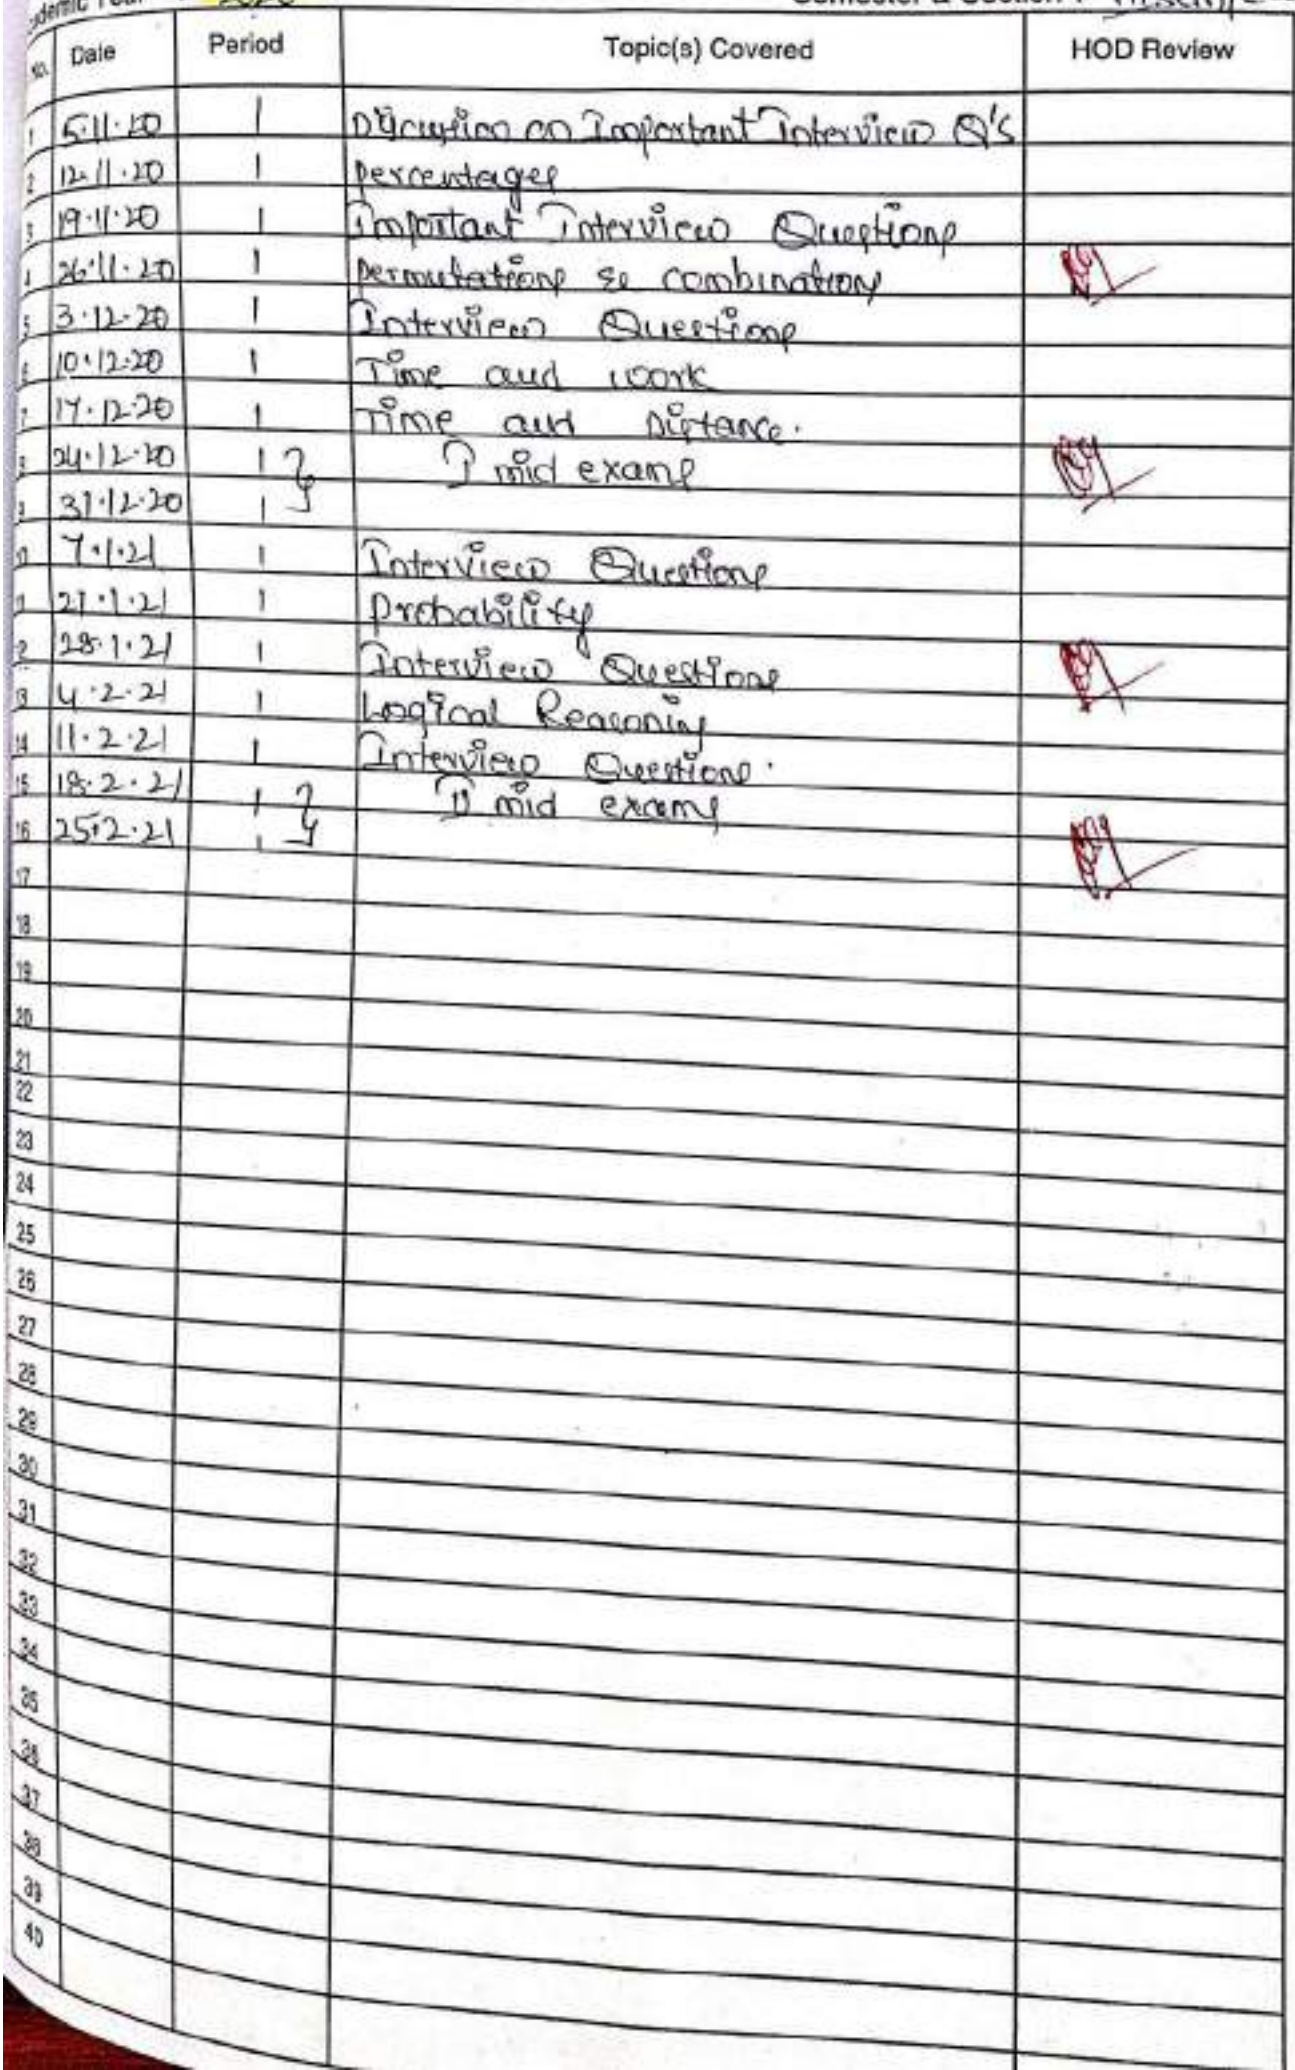 Academic Year : 2020 Semester & Section :
No. Date Period Topic(s) Covered HOD Review
1 5.11.20 1 Discussion on Important Interview Q's
2 12.11.20 1 percentages
3 19.11.20 1 Important Interview Questions
4 26.11.20 1 permutations & combinations
5 3.12.20 1 Interview Questions
6 10.12.20 1 Time and work
7 17.12.20 1 Time and Distance.
8 24.12.20 1 } I mid exams
9 31.12.20 1
10 7.1.21 1 Interview Questions
11 21.1.21 1 Probability
12 28.1.21 1 Interview Questions
13 4.2.21 1 Logical Reasoning
14 11.2.21 1 Interview Questions.
15 18.2.21 1 } II mid exams
16 25.2.21 1
17
18
19
20
21
22
23
24
25
26
27
28
29
30
31
32
33
34
35
36
37
38
39
40